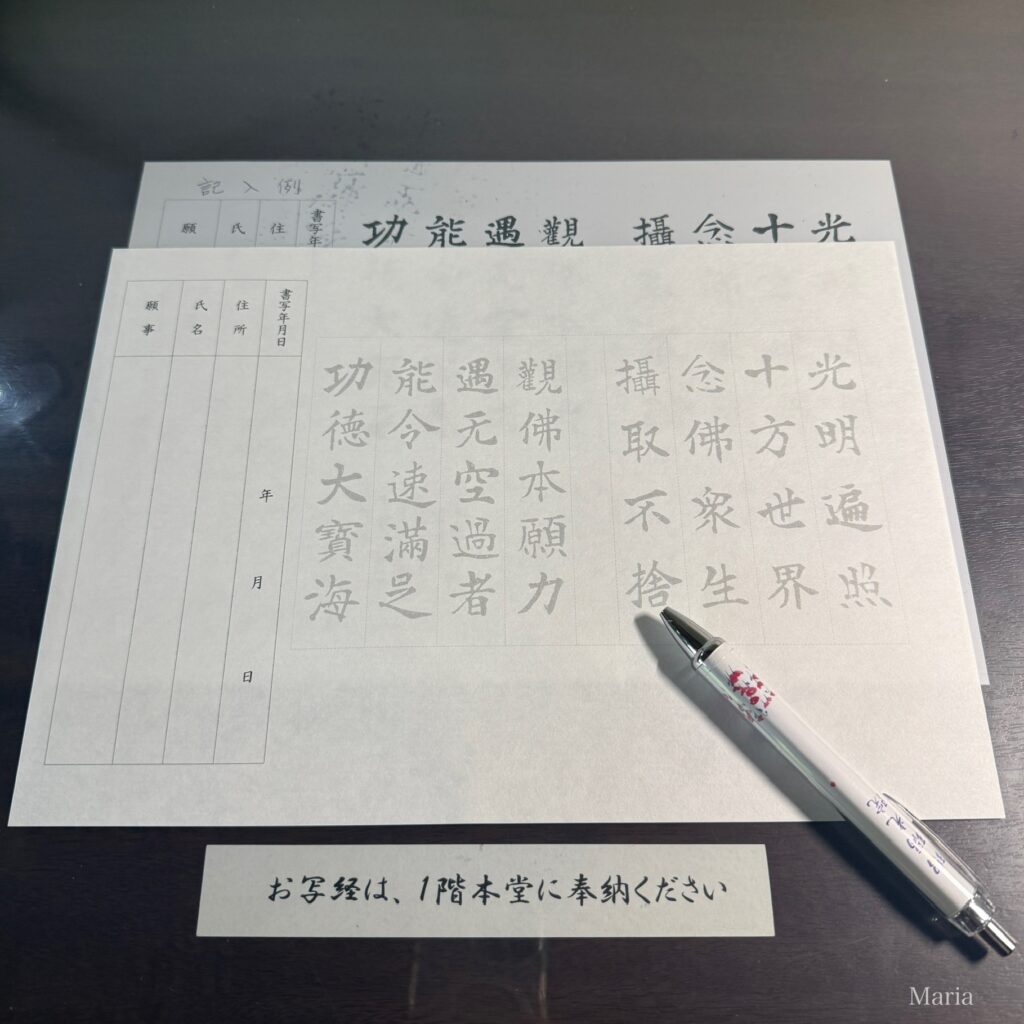 記入例
光
十
念
攝
觀
遇
能
功
書写年
住
氏
願
光明遍照
十方世界
念佛衆生
攝取不捨
觀佛本願力
遇无空過者
能令速滿足
功德大寶海
書写年月日
年 月 日
住所
氏名
願事
お写経は、1階本堂に奉納ください
Maria